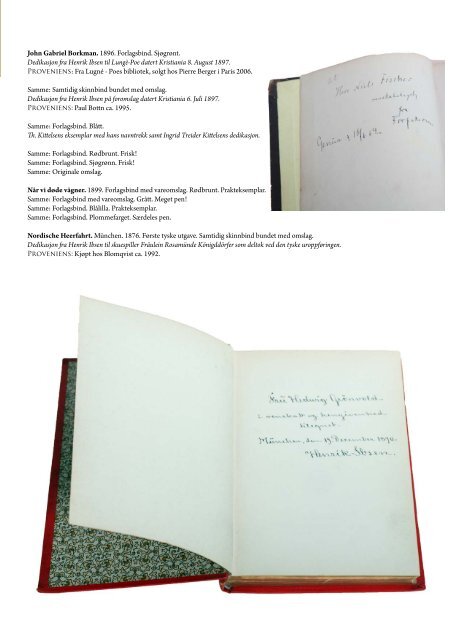 John Gabriel Borkman. 1896. Forlagsbind. Sjøgrønt.
Dedikasjon fra Henrik Ibsen til Lungè-Poe datert Kristiania 8. August 1897.
PROVENIENS: Fra Lugné - Poes bibliotek, solgt hos Pierre Berger i Paris 2006.
Samme: Samtidig skinnbind bundet med omslag.
Dedikasjon fra Henrik Ibsen på foromslag datert Kristiania 6. Juli 1897.
PROVENIENS: Paul Bottn ca. 1995.
Samme: Forlagsbind. Blått.
Th. Kittelsens eksemplar med hans navntrekk samt Ingrid Treider Kittelsens dedikasjon.
Samme: Forlagsbind. Rødbrunt. Frisk!
Samme: Forlagsbind. Sjøgrønn. Frisk!
Samme: Originale omslag.
Når vi døde vågner. 1899. Forlagsbind med vareomslag. Rødbrunt. Prakteksemplar.
Samme: Forlagsbind med vareomslag. Grått. Meget pen!
Samme: Forlagsbind. Blålilla. Prakteksemplar.
Samme: Forlagsbind. Plommefarget. Særdeles pen.
Nordische Heerfahrt. München. 1876. Første tyske utgave. Samtidig skinnbind bundet med omslag.
Dedikasjon fra Henrik Ibsen til skuespiller Fräulein Rosamunde Königddörfer som deltok ved den tyske uroppføringen.
PROVENIENS: Kjøpt hos Blomqvist ca. 1992.
Herr Niels Fischer
fra
Forfatteren
Fru Hedwig Grønvold
i venskab og hengivenhed
tilegnet.
München, den 19 December 1890.
Henrik Ibsen.